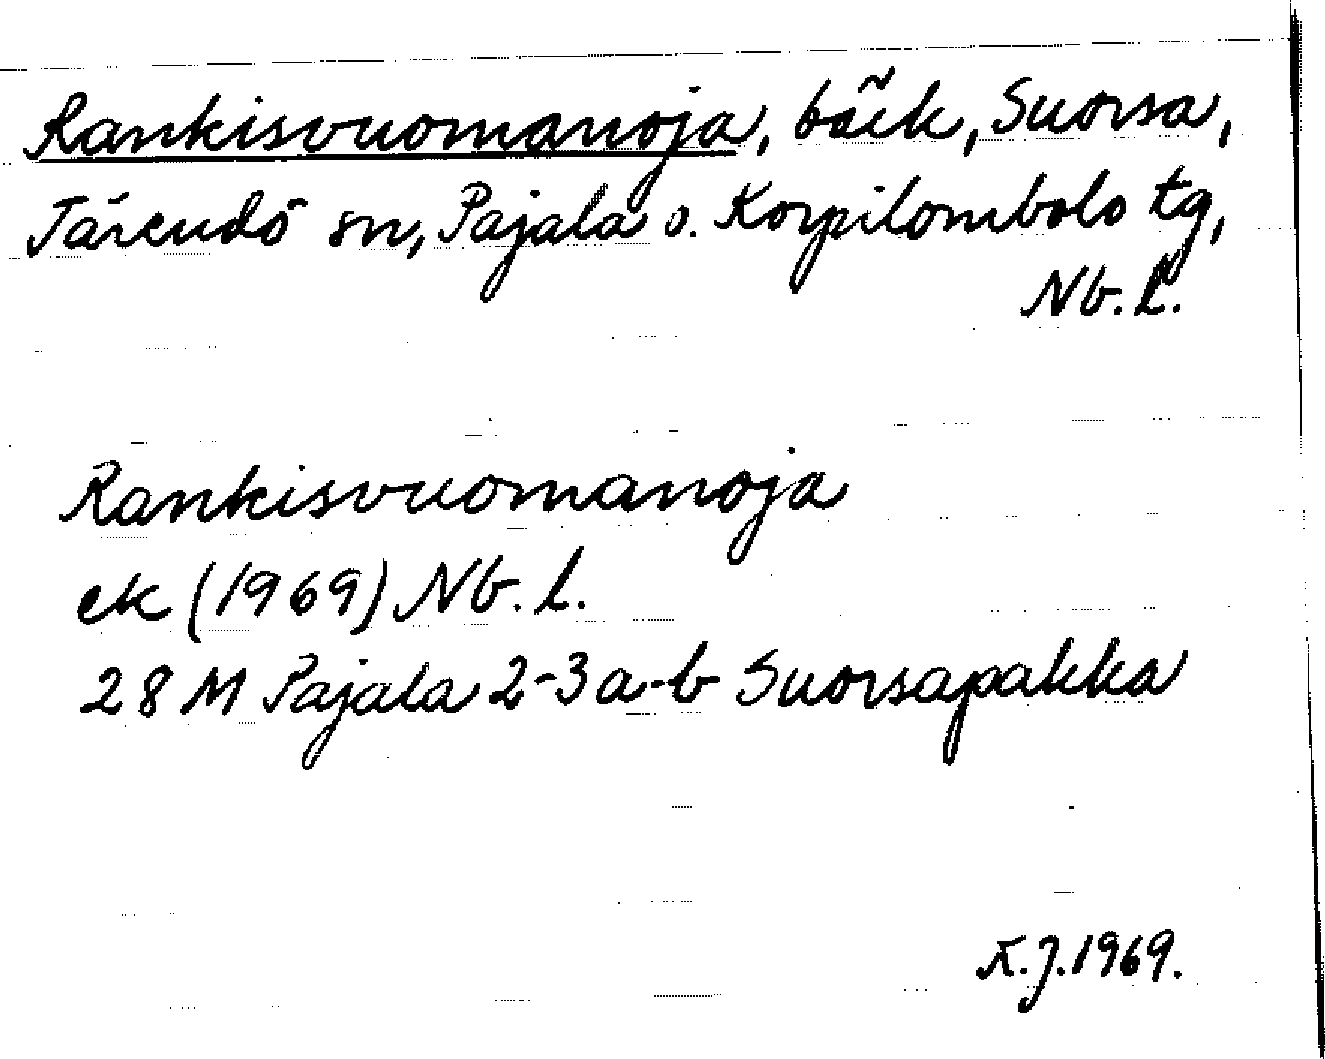 Rankisvuomanoja, bäck, Suorsa,
Tärendö sn, Pajala o. Korpilombolo tg,
Nb. l.
Rankisvuomanoja
ek (1969) Nb. l.
28 M Pajala 2-3 a-b Suorsapakka
K.J. 1969.